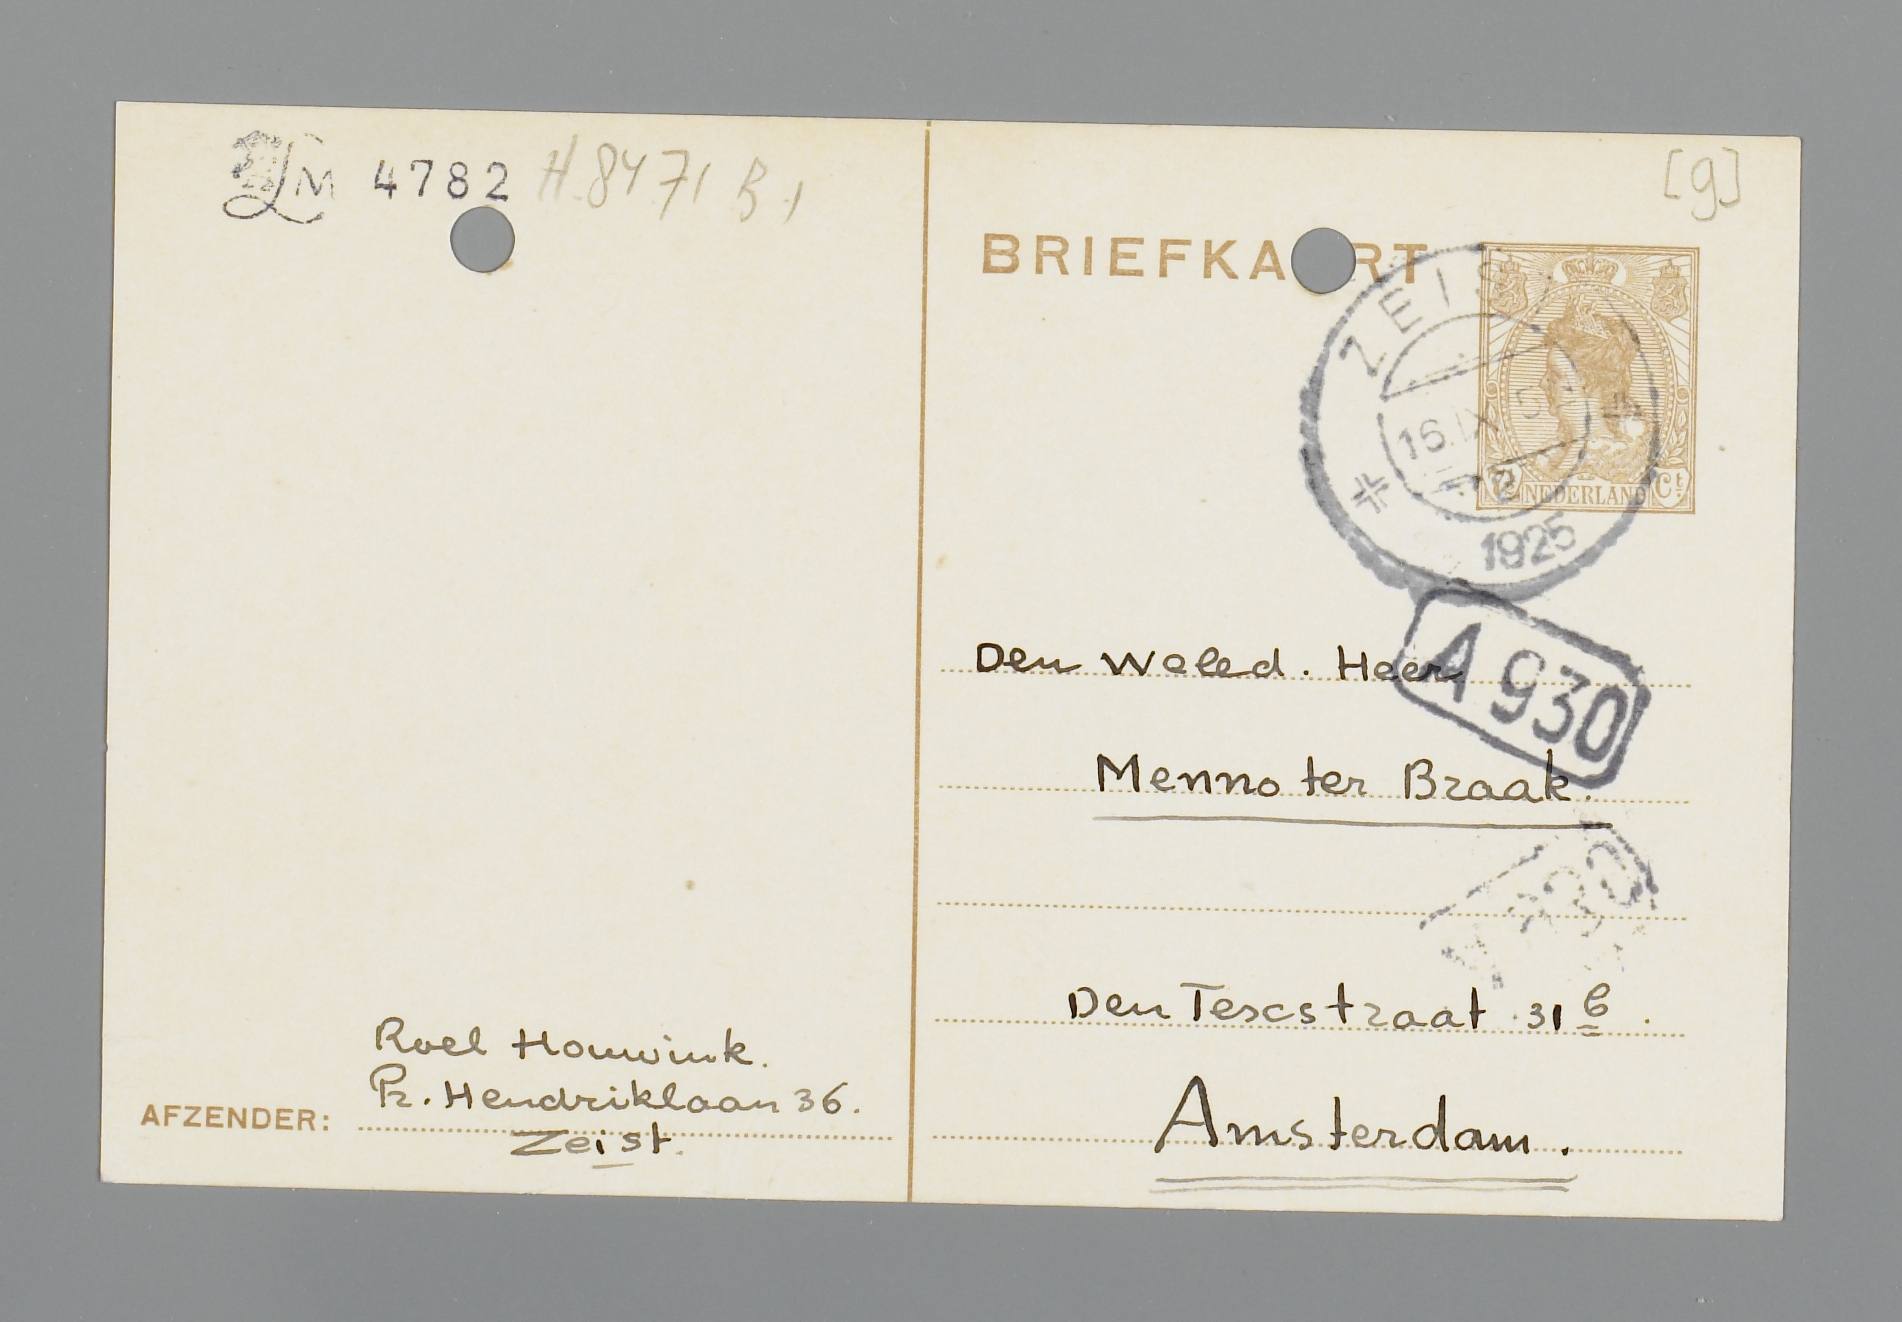 LM 4782 H.8471 B.1
[g]
BRIEFKAART
ZEIST
16.IX
1925
7½ NEDERLAND Ct
A 930
Den Weled. Heer
Menno ter Braak.
Den Texstraat 31 b.
Amsterdam.
Roel Houwink.
Pr. Hendriklaan 36.
AFZENDER:
Zeist.